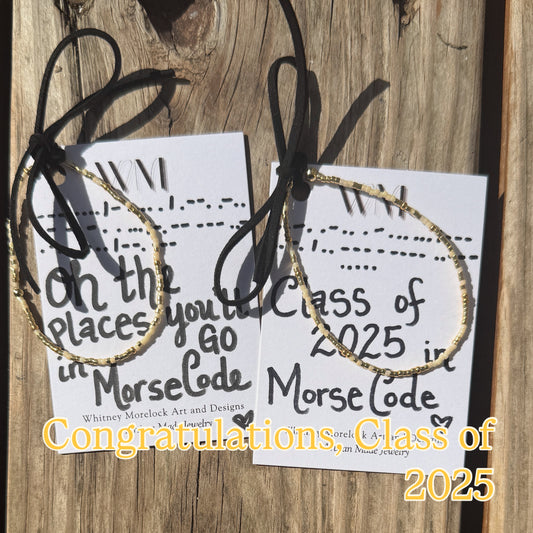 WM
oh the
places you'll
GO
in Morse Code
Whitney Morelock Art and Designs
Made Jewelry
WM
Class of
2025 in
Morse Code
Morelock Art
Made Jewelry
Congratulations, Class of
2025